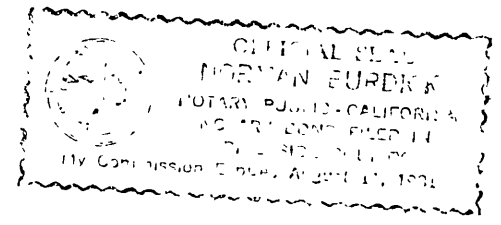 OFFICIAL SEAL
NORMAN BURDICK
NOTARY PUBLIC - CALIFORNIA
NOTARY BOND FILED IN
COUNTY
My Commission Expires August 1991